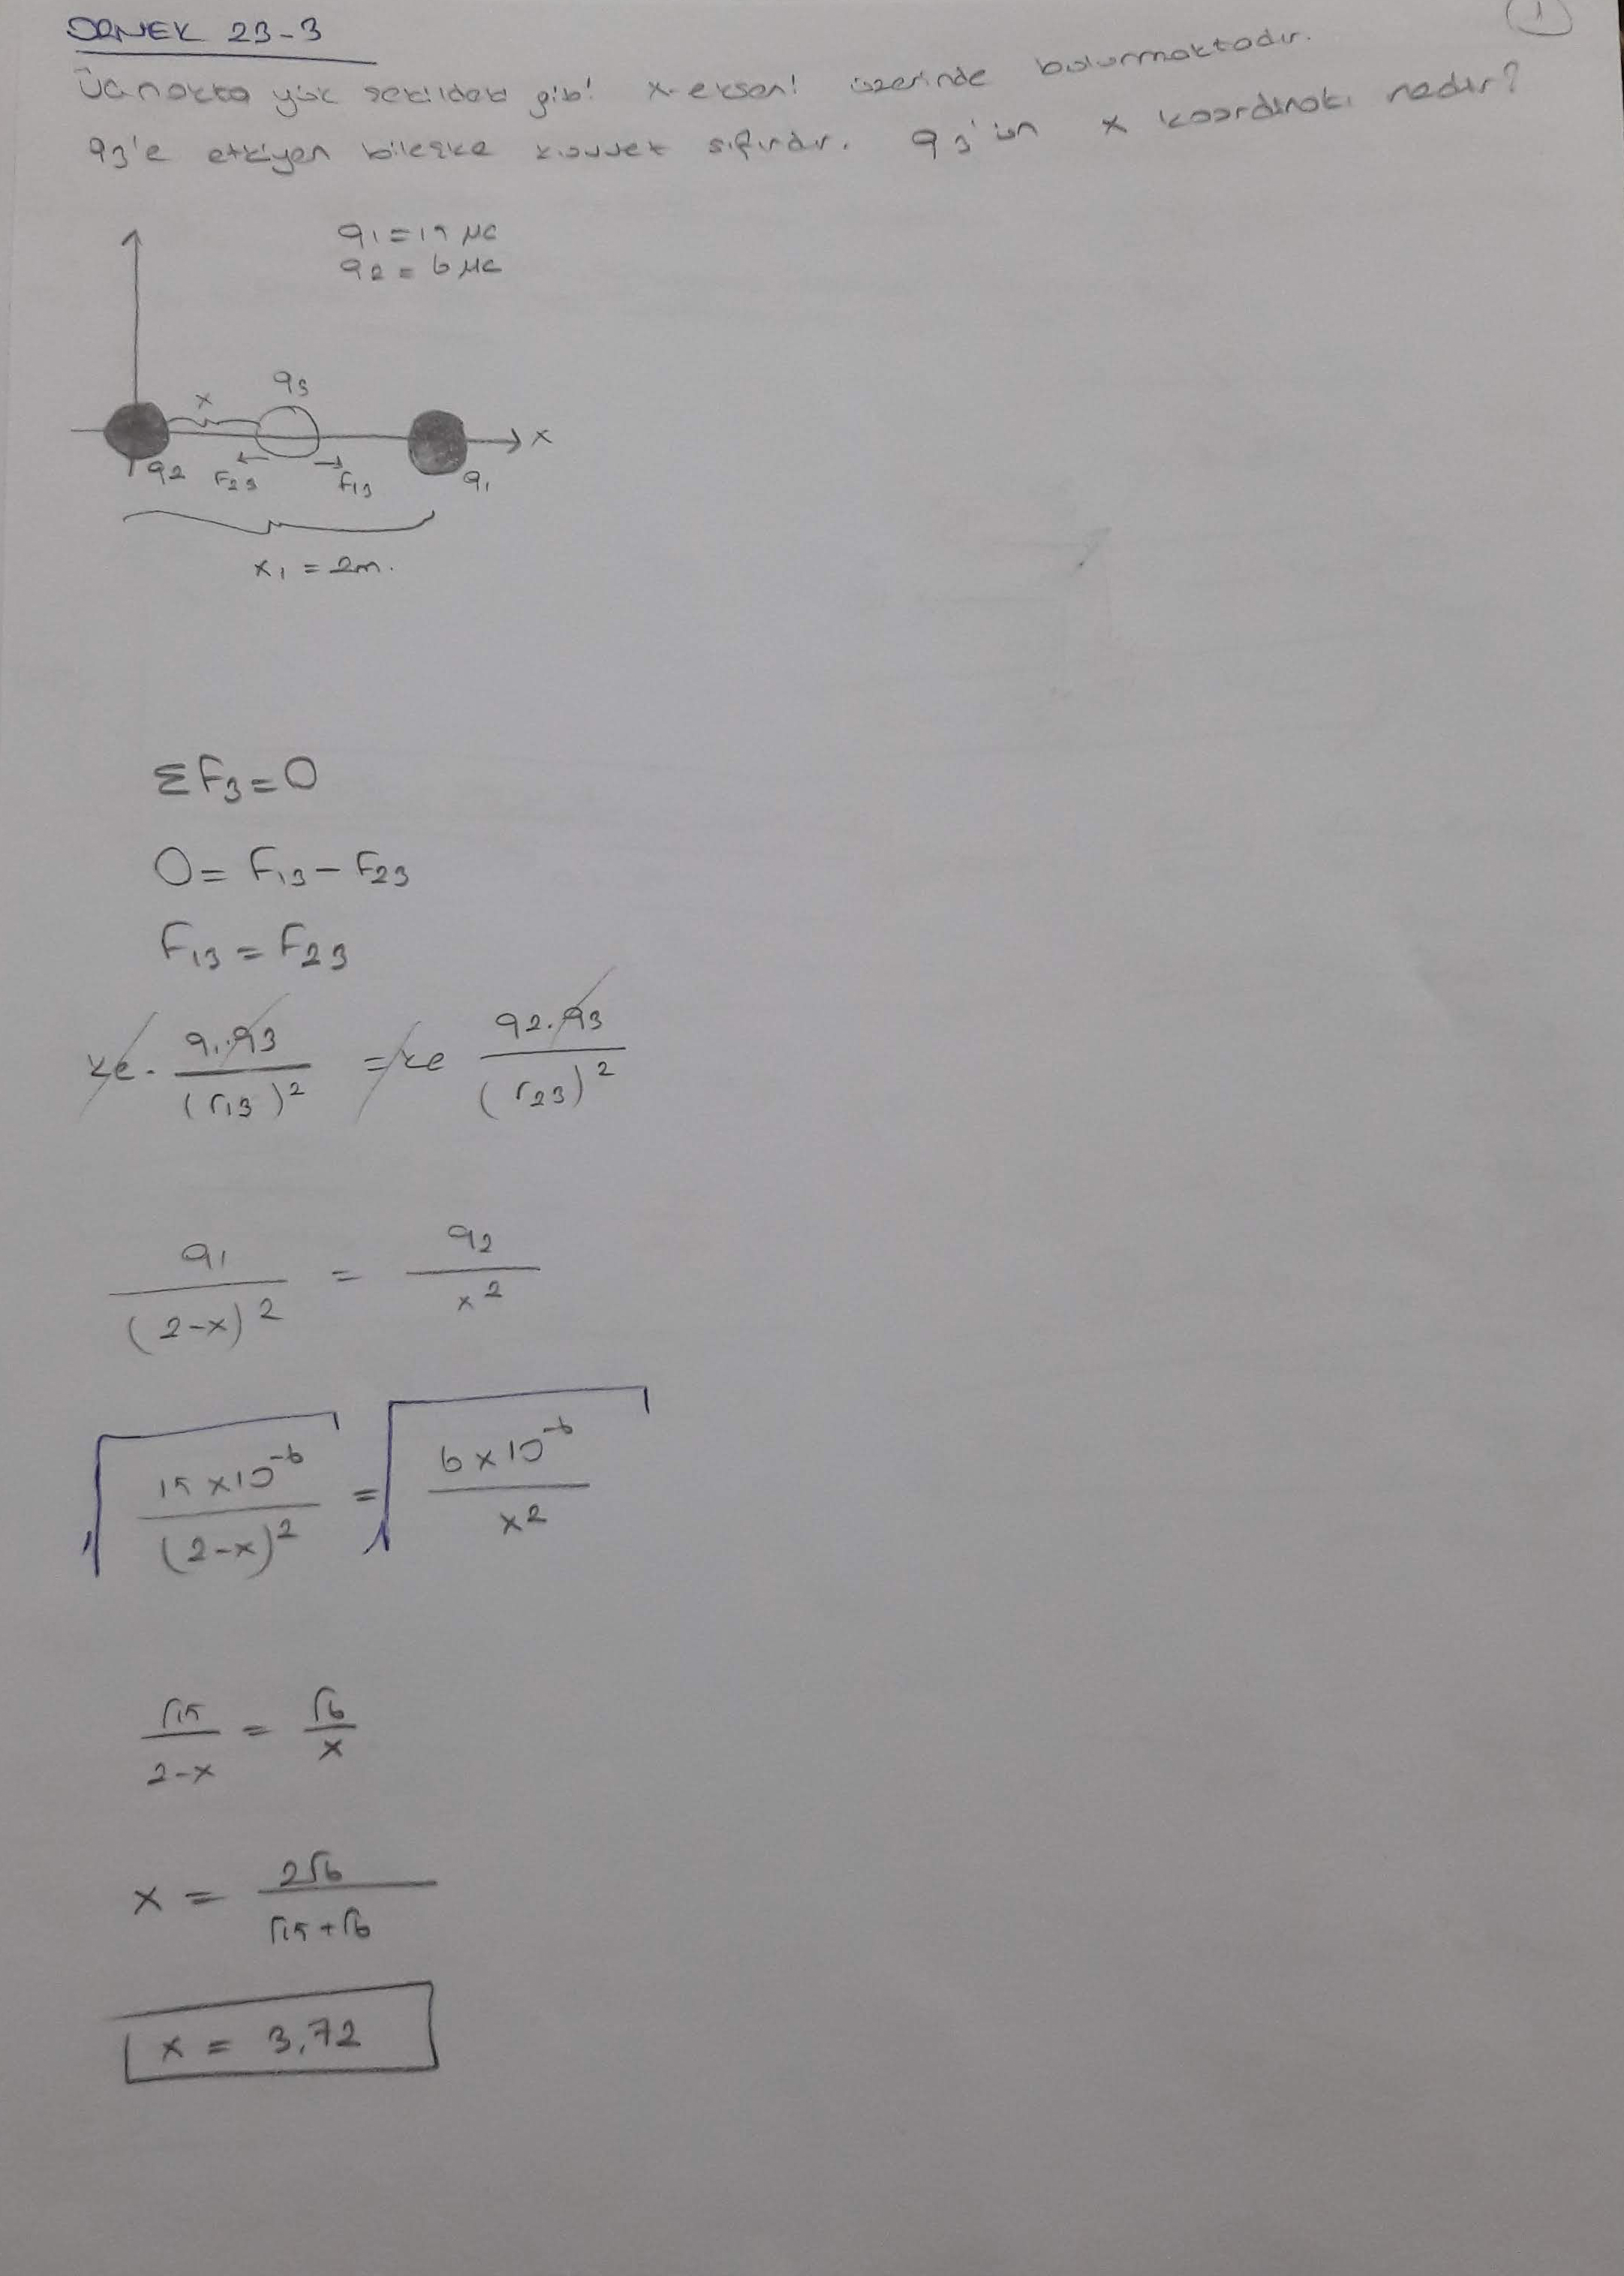 1
ÖRNEK 23-3
Üç nokta yük şekildeki gibi x-ekseni üzerinde bulunmaktadır.
q3'e etkiyen bileşke kuvvet sıfırdır. q3'ün x koordinatı nedir?
q1 = 15 μC
q2 = 6 μC
q3
x
x
q2 F23 F13 q1
x1 = 2m.
ΣF3 = 0
0 = F13 - F23
F13 = F23
ke. q1.q3 / (r13)² = ke q2.q3 / (r23)²
q1 / (2-x)² = q2 / x²
√(15 x 10^-6 / (2-x)²) = √(6 x 10^-6 / x²)
√15 / 2-x = √6 / x
x = 2√6 / √15 + √6
x = 3,72